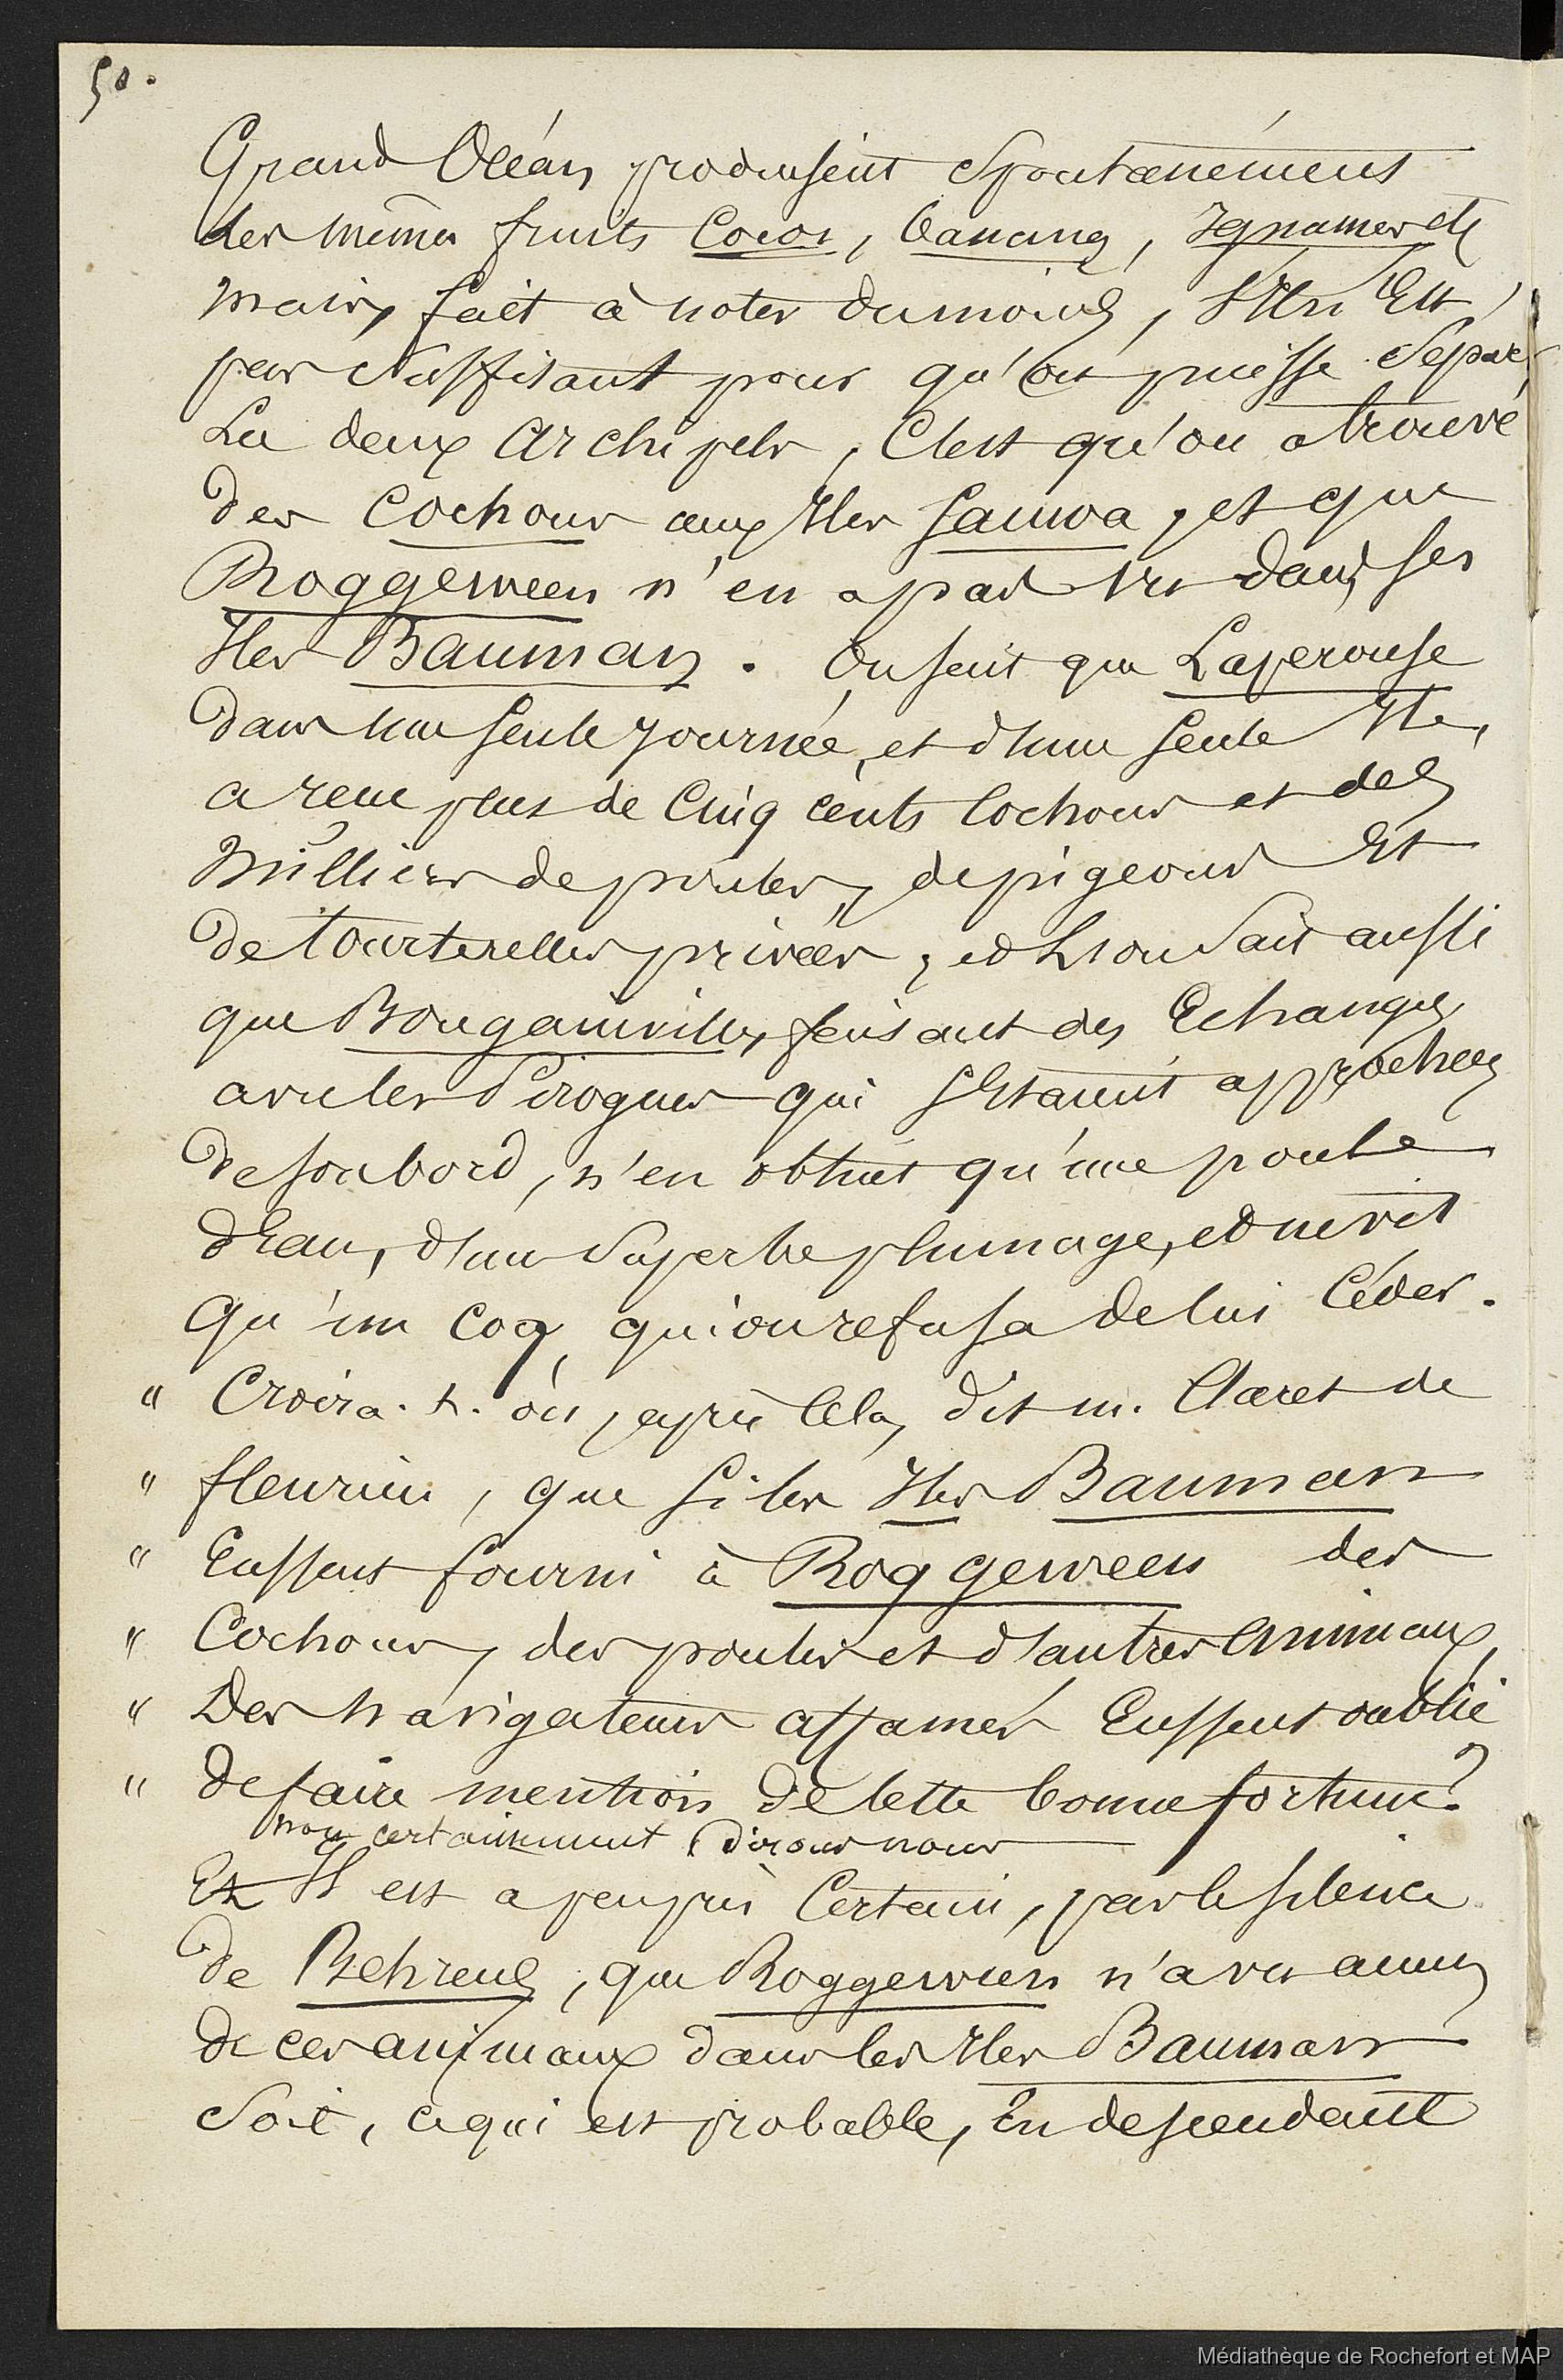 50.
Grand Océan produisent Spontanément
des mêmes fruits Cocos, bananes, Ignames etc
mais, fait à noter du moins, S'Il n'Est
pas Suffisant pour qu'on puisse Séparer
Les deux Archipels, C'est qu'on a trouvé
des Cochons aux Iles Samoa, et que
Roggeween n'en a pas vu dans ses
Iles Bauman. On sait que Laperouse
dans une seule journée, et d'une seule Ile,
a reçu plus de Cinq cents Cochons et des
Milliers de poules, de pigeons Et
de tourterelles privées, et l'on Sait aussi
que Bougainville, faisant des Echanges
avec les Pirogues qui S'Etaient approchées
de son bord, n'en obtint qu'une poule
d'Eau, d'un Superbe plumage, et ne vit
qu'un Coq, qu'on refusa de lui Céder.
" Croira-t-on, après Cela, dit M. Claret de
" fleurieu, que si les Iles Bauman
" Eussent fourni à Roggeween des
" Cochons, des poules et d'autres Animaux,
" Des navigateurs affamés Eussent oublié
" de faire mention de Cette bonne fortune?
non certainement, dirons nous
Et Il est a peu près Certain, par le silence
de Behrens, que Roggeween n'a vu aucun
de ces animaux dans les Iles Bauman
Soit, ce qui est probable, En descendant
Médiathèque de Rochefort et MAP